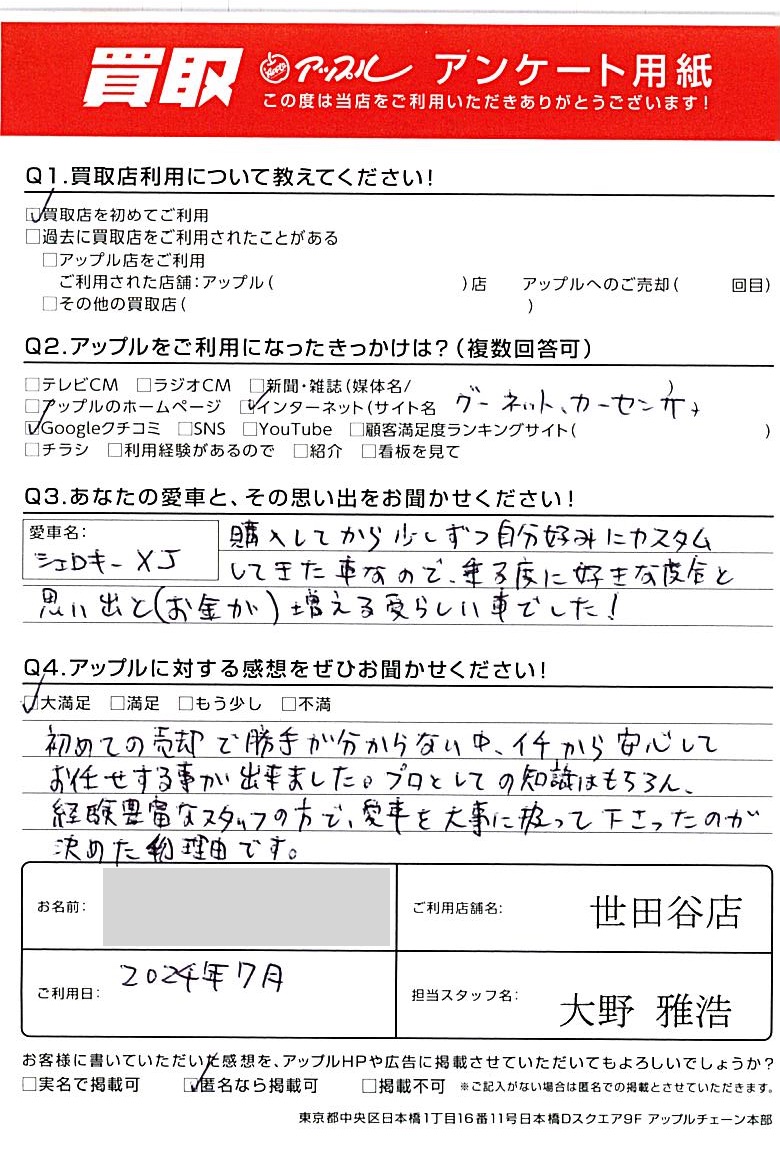 買取 アップル アンケート用紙
この度は当店をご利用いただきありがとうございます!
Q1.買取店利用について教えてください!
☑買取店を初めてご利用
□過去に買取店をご利用されたことがある
□アップル店をご利用
ご利用された店舗:アップル( )店 アップルへのご売却( 回目)
□その他の買取店( )
Q2.アップルをご利用になったきっかけは?(複数回答可)
□テレビCM □ラジオCM □新聞・雑誌(媒体名/ )
□アップルのホームページ ☑インターネット(サイト名 グーネット、カーセンサー
☑Googleクチコミ □SNS □YouTube □顧客満足度ランキングサイト( )
□チラシ □利用経験があるので □紹介 □看板を見て
Q3.あなたの愛車と、その思い出をお聞かせください!
愛車名: 購入してから少しずつ自分好みにカスタム
シェロキー XJ してきた車なので、乗る度に好きな度合と
思い出と(お金が)増える愛らしい車でした!
Q4.アップルに対する感想をぜひお聞かせください!
☑大満足 □満足 □もう少し □不満
初めての売却で勝手が分からない中、イチから安心して
お任せする事が出来ました。プロとしての知識はもちろん、
経験豊富なスタッフの方で、愛車を大事に扱って下さったのが
決めた理由です。
お名前: ご利用店舗名: 世田谷店
ご利用日: 2024年7月 担当スタッフ名: 大野 雅浩
お客様に書いていただいた感想を、アップルHPや広告に掲載させていただいてもよろしいでしょうか?
□実名で掲載可 ☑匿名なら掲載可 □掲載不可 ※ご記入がない場合は匿名での掲載とさせていただきます。
東京都中央区日本橋1丁目16番11号日本橋Dスクエア9F アップルチェーン本部